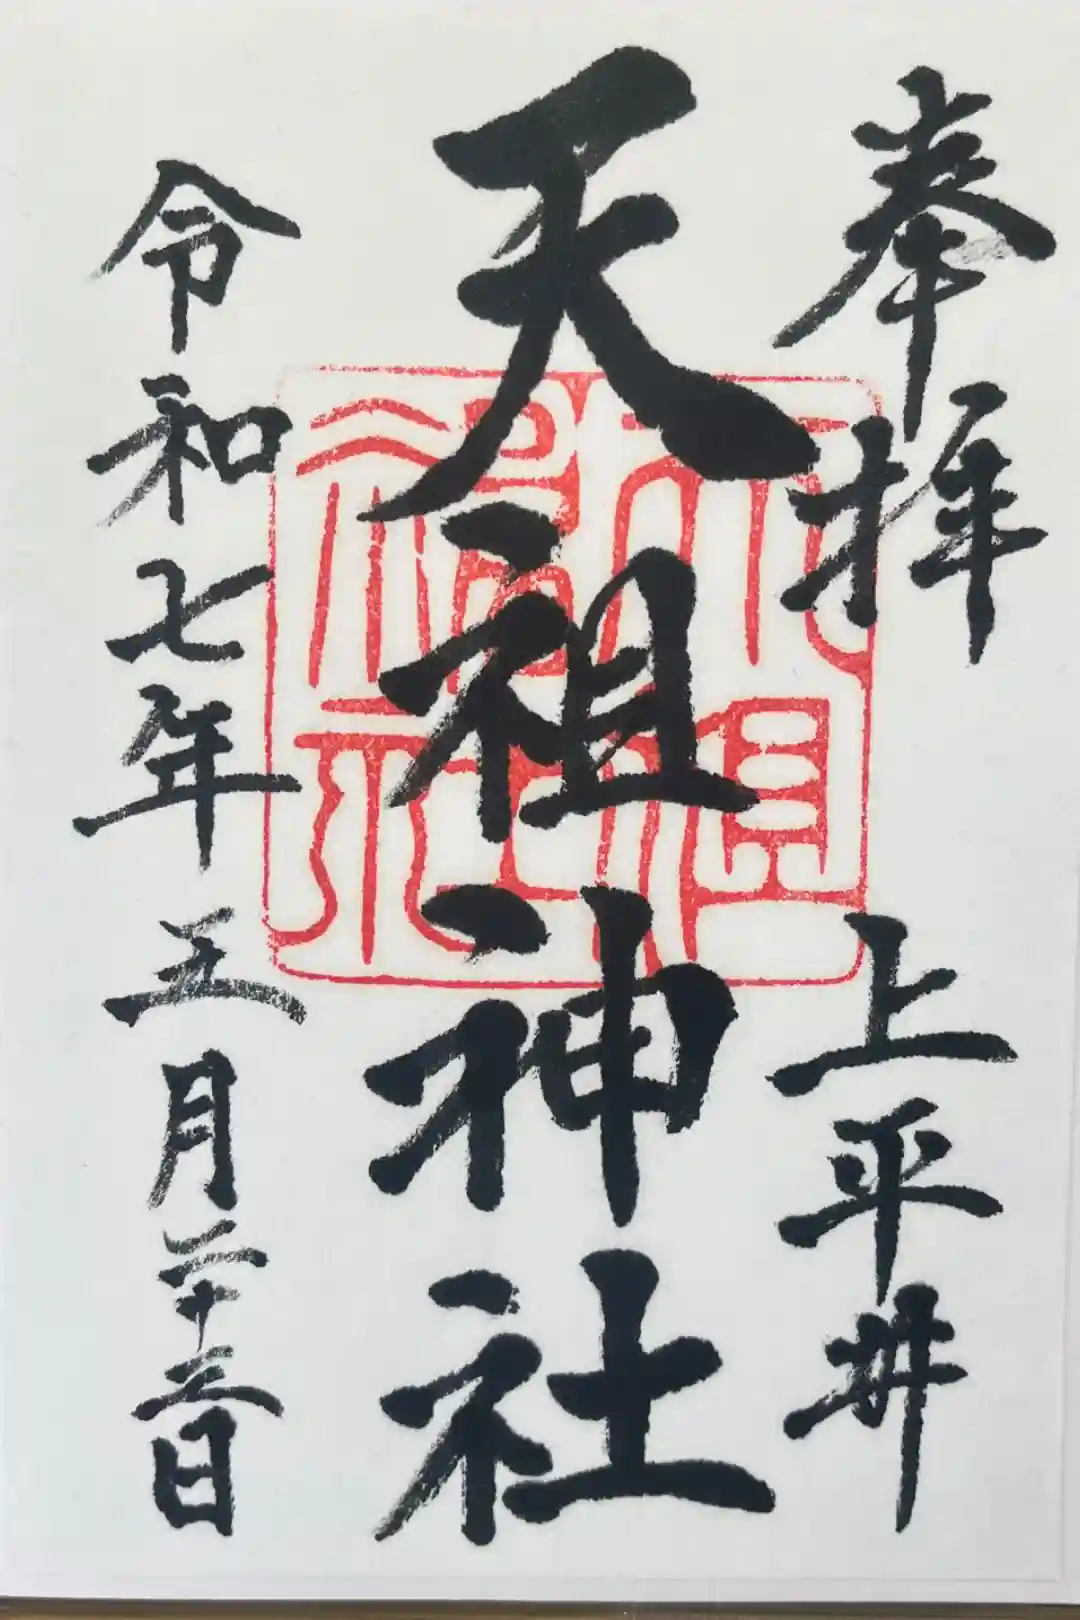 奉拝 上平井
天祖神社
令和七年五月二十日